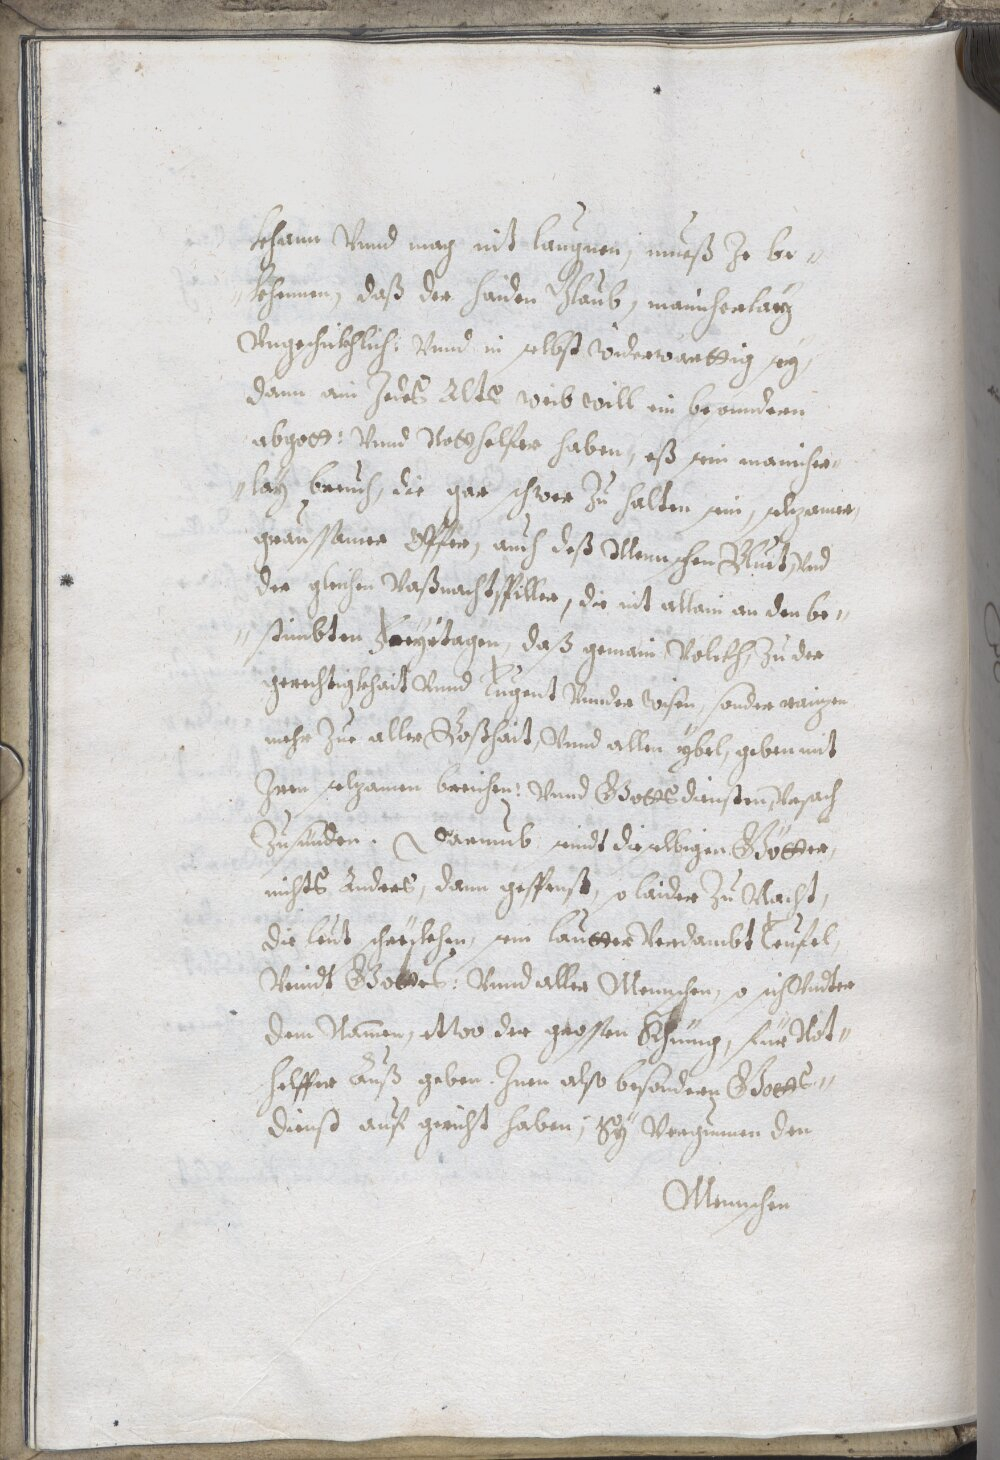 khann Vnnd mag nit laugnen, mueß Je be¬
khennen, daß der haiden Glaub, maincherlaÿ
Vngeschikhlich: Vnnd in selbst widerwärttig seÿ,
dann ain Jedes Alts weib will ein besonndern
abgott: Vnnd Notthelfer haben, eß sein mannicher¬
laÿ breuch, die gar schwer Zu halten sein, selzamer,
graussamer Opffer, auch deß Mennschen Bluet, Vnd
der gleichen Vaßnachtspiller, die nit allain an den be¬
stimbten Feÿrtagen, daß gemain Volckh, Zu der
gerechtigkhait Vnnd Tugent Vnnder wisen, sonder raizen
mehr Zue aller Boßhait, Vnnd allen ÿbel, geben mit
Jren selzamen breichen: Vnnd Gottsdiensten, Vrsach
Zu sünden. Darumb seindt dieselbigen Götter,
nichts Anders, dann gespenst, so laider Zu Nacht,
die leut schröckhen, sein lautter Verdambt Teufel,
Veindt Gottes: Vnnd aller Mennschen, so sich Vndter
dem Namen, ettwo der grossen Khünig, für Not¬
helffer Auß geben. Jnen also besondern Gotts¬
dienst auf gericht haben, Sÿ Vergunnen den
Mennschen